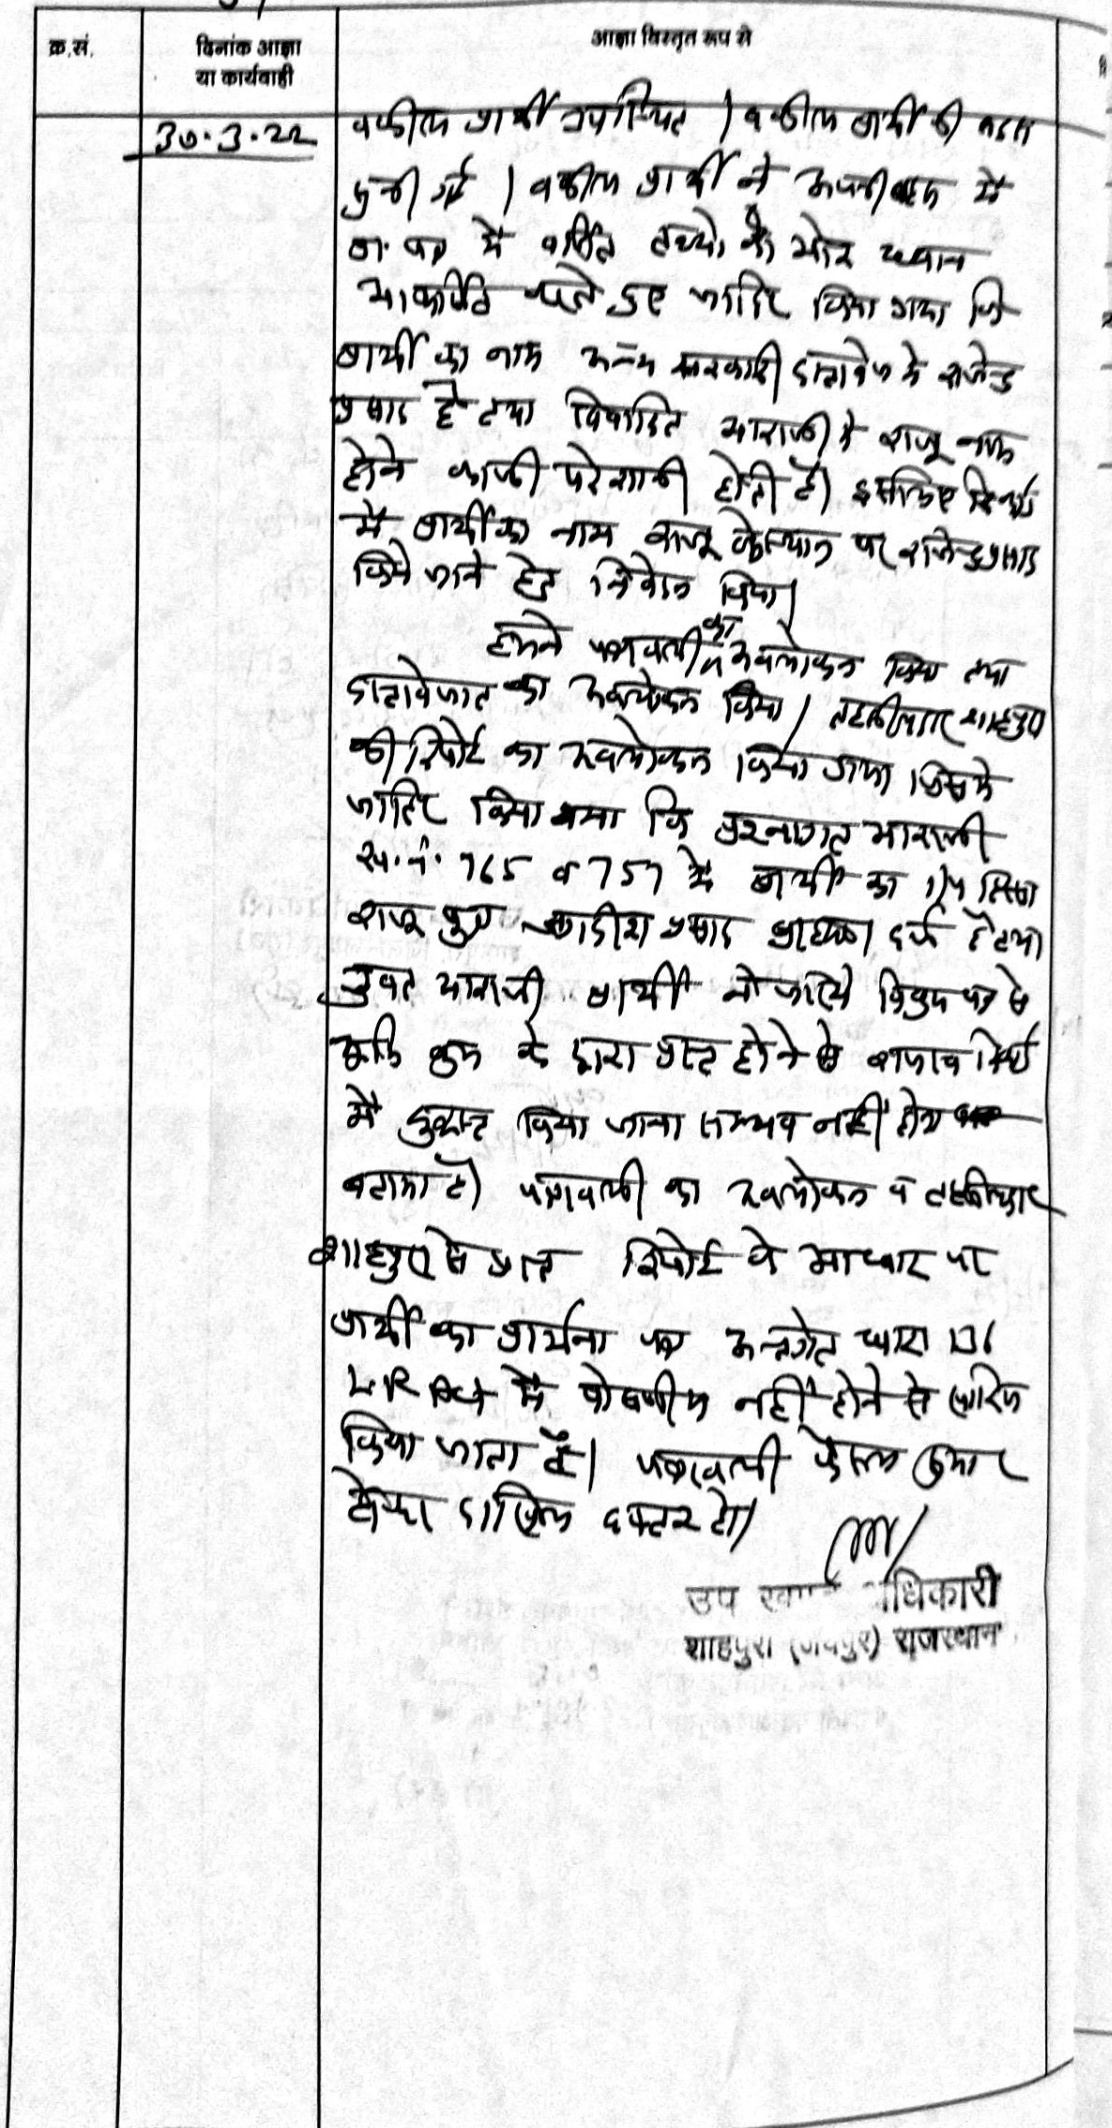 क्र.सं.
दिनांक आज्ञा
या कार्यवाही
आज्ञा विस्तृत रूप से
30.3.22
वकील प्रार्थी उपस्थित । वकील प्रार्थी की बहस
सुनी गई । वकील प्रार्थी ने अपनी बहस में
प्रा. पत्र में वर्णित तथ्यो की ओर ध्यान
आकर्षित करते हुए जाहिर किया गया कि
प्रार्थी का नाम अन्य सरकारी दस्तावेज मे राजेन्द्र
प्रसाद है तथा विवादित आराजी मे राजू नाम
होने काफी परेशानी होती है। इसलिए रिकार्ड
में प्रार्थी का नाम राजू के स्थान पर राजेन्द्र प्रसाद
किये जाने हेतु निवेदन किया।
हमने पत्रावली का अवलोकन किया तथा
दस्तावेजात का अवलोकन किया। तहसीलदार शाहपुरा
की रिपोर्ट का अवलोकन किया गया जिसमे
जाहिर किया गया कि प्रश्नागत आराजी
ख.नं. 765 व 757 में प्रार्थी का हिस्सा
राजू पुत्र जगदीश प्रसाद ब्राह्मण दर्ज है तथा
उक्त आराजी प्रार्थी को जरिये विक्रय पत्र से
के द्वारा प्राप्त होने से राजस्व रिकार्ड
में शुद्ध किया जाना सम्भव नहीं होना
बताया है। पत्रावली का अवलोकन व तहसीलदार
शाहपुरा से प्राप्त रिपोर्ट के आधार पर
प्रार्थी का प्रार्थना पत्र अन्तर्गत धारा 136
LR Act में पोषणीय नहीं होने से खारिज
किया जाता है। पत्रावली फैसल शुमार
होकर दाखिल दफ्तर हो।
उप अधिकारी
शाहपुरा (जयपुर) राजस्थान